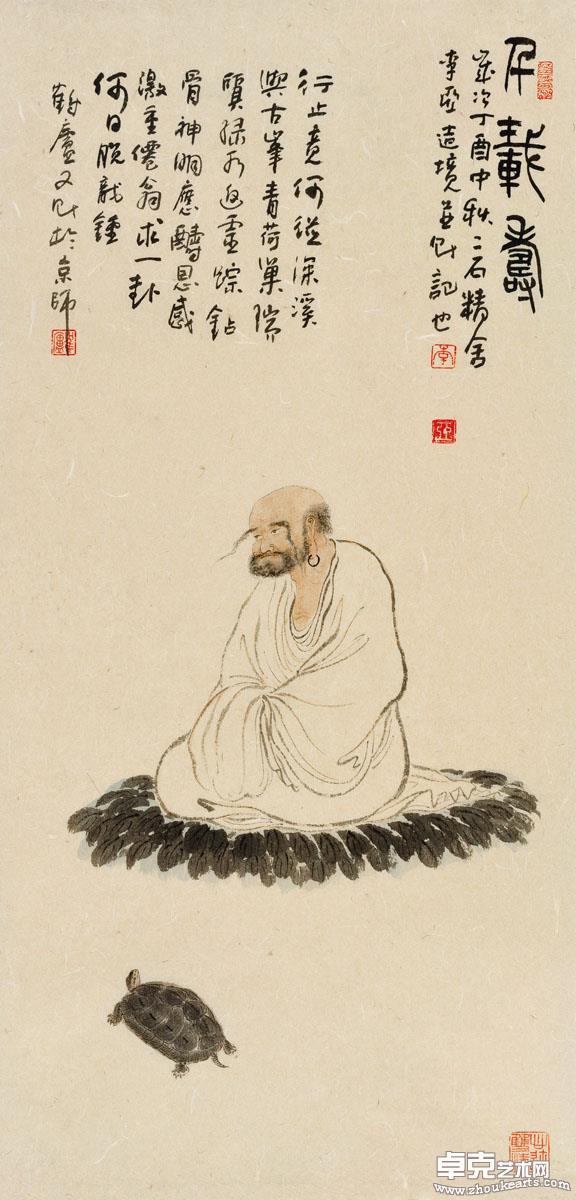 千載壽
歲次丁酉中秋二石精舍
李亞造境並題記也
李
亞
行止竟何從深溪
與古峯青荷巢瑞
質綠水返靈踪鉆
骨神明應醻恩感
激重僊翁求一卦
何日脫龍鍾
鶴廬又題於京師
卓克艺术网
www.zhoukearts.com